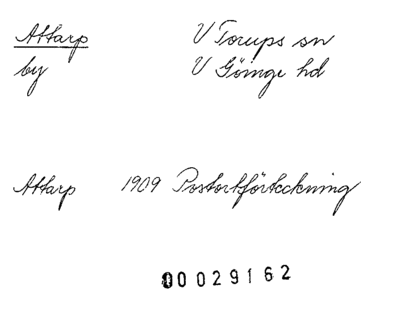 Attarp V Torups sn
by V Göinge hd
Attarp 1909 Postortförteckning
00029162